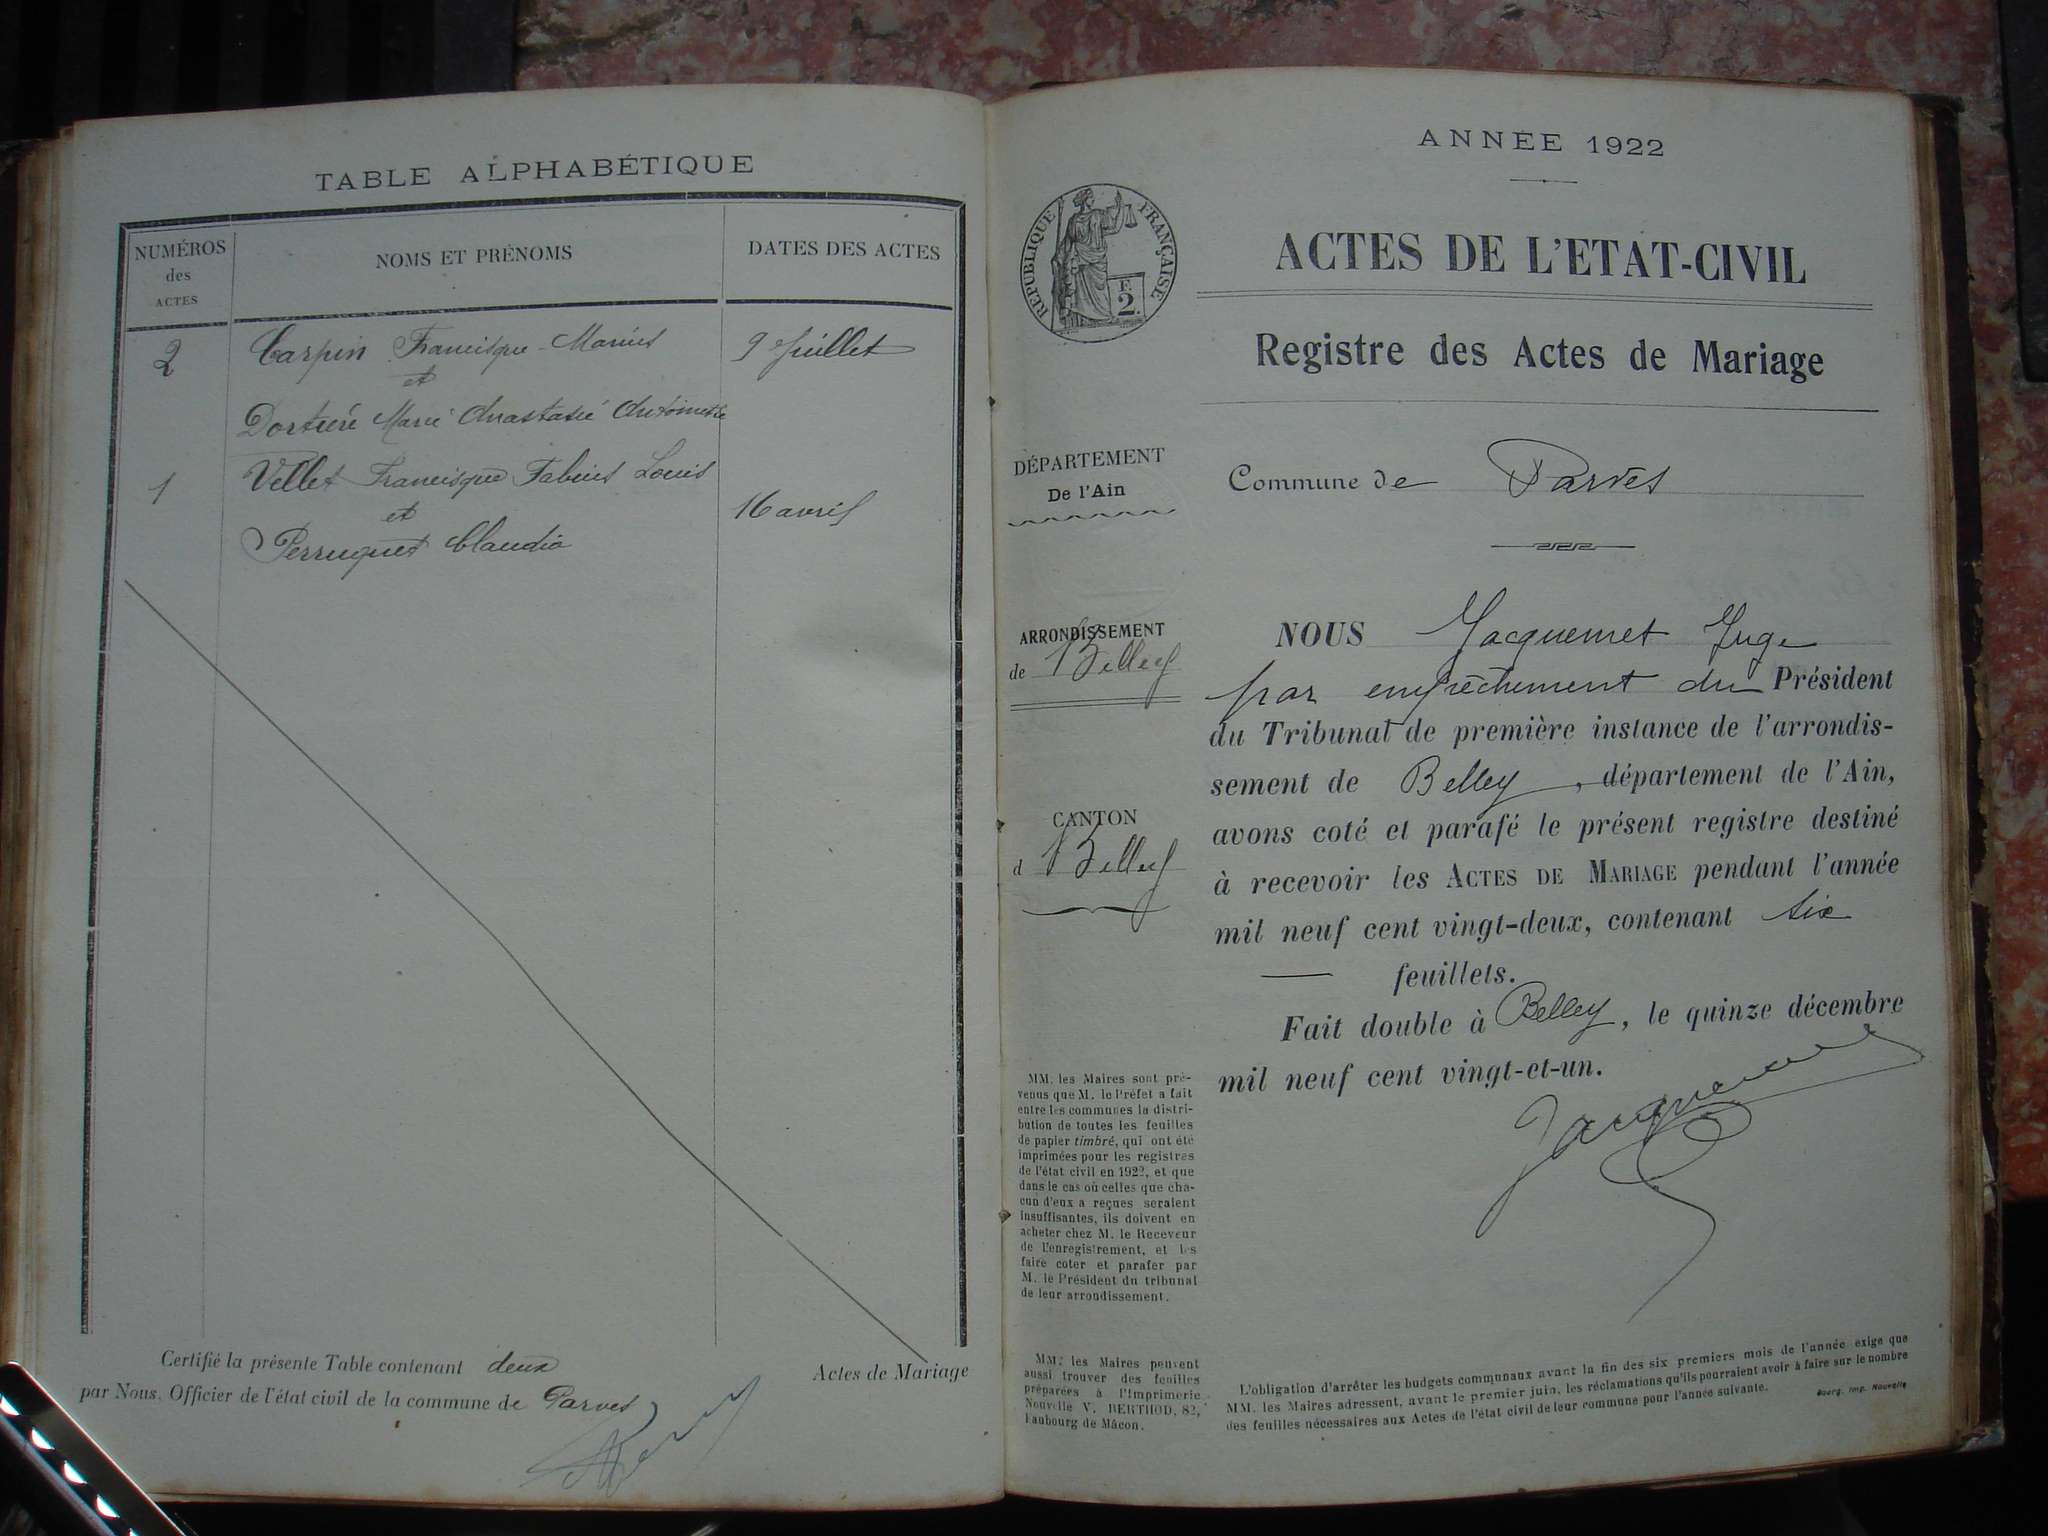 TABLE ALPHABÉTIQUE
NUMÉROS
des
ACTES
NOMS ET PRÉNOMS
DATES DES ACTES
2 Carpin Francisque-Marius 9 Juillet
et
Marie Anastasie Antoinette
1 Vellet Francisque Fabius Louis
et
16 avril
Perruquet Claudia
Certifié la présente Table contenant deux Actes de Mariage
par Nous, Officier de l'état civil de la commune de Parves
ANNÉE 1922
RÉPUBLIQUE FRANÇAISE
F.
2.
ACTES DE L'ETAT-CIVIL
Registre des Actes de Mariage
DÉPARTEMENT
De l'Ain
ARRONDISSEMENT
de Belley
CANTON
d Belley
MM. les Maires sont pré-
venus que M. le Préfet a fait
entre les communes la distri-
bution de toutes les feuilles
de papier timbré, qui ont été
imprimées pour les registres
de l'état civil en 1922, et que
dans le cas où celles que cha-
cun d'eux a reçues seraient
insuffisantes, ils doivent en
acheter chez M. le Receveur
de l'enregistrement, et les
faire coter et parafer par
M. le Président du tribunal
de leur arrondissement.
MM. les Maires peuvent
aussi trouver des feuilles
préparées à l'Imprimerie
Nouvelle V. BERTHOD, 82,
Faubourg de Mâcon.
Commune de Parves
NOUS Jacquemet Juge
par empêchement du Président
du Tribunal de première instance de l'arrondis-
sement de Belley, département de l'Ain,
avons coté et parafé le présent registre destiné
à recevoir les ACTES DE MARIAGE pendant l'année
mil neuf cent vingt-deux, contenant six
— feuillets.
Fait double à Belley, le quinze décembre
mil neuf cent vingt-et-un.
Jacquemet
L'obligation d'arrêter les budgets communaux avant la fin des six premiers mois de l'année exige que
MM. les Maires adressent, avant le premier juin, les réclamations qu'ils pourraient avoir à faire sur le nombre
des feuilles nécessaires aux Actes de l'état civil de leur commune pour l'année suivante.
Bourg, Imp. Nouvelle